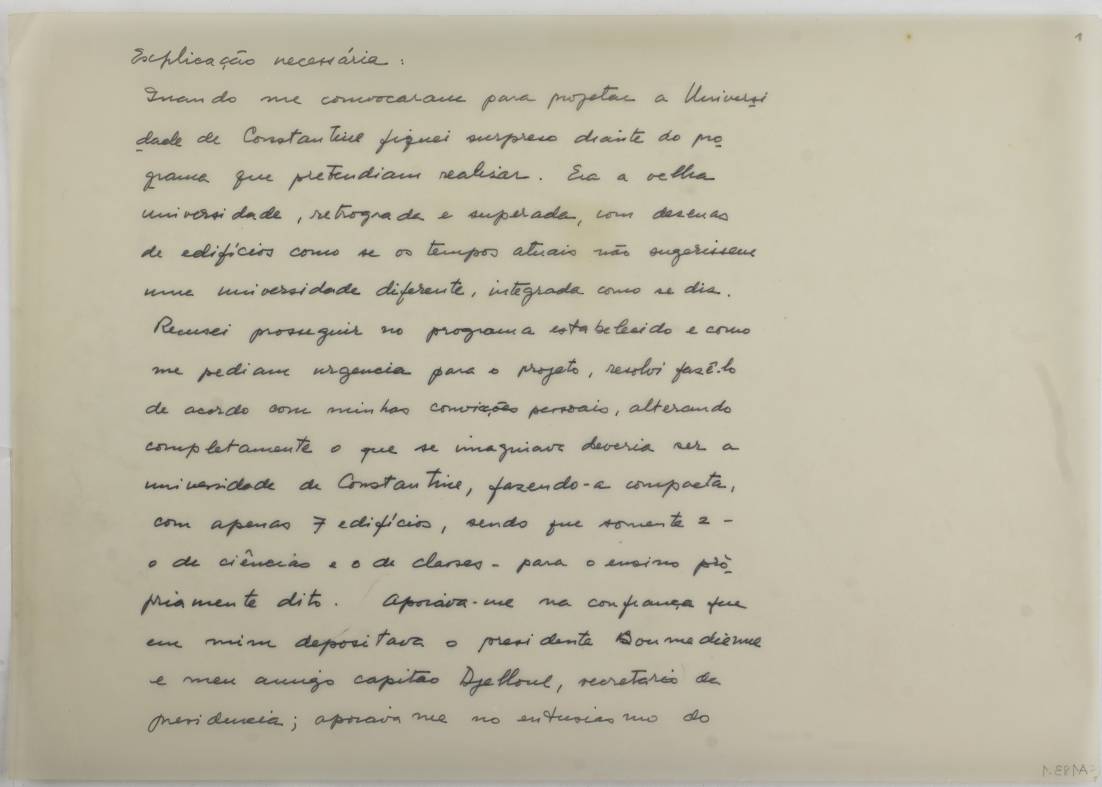 1
Explicação necessária :
Quando me convocaram para projetar a Universi
dade de Constantine fiquei surpreso diante do pro
grama que pretendiam realisar. Era a velha
universidade, retrograda e superada, com desenas
de edifícios como se os tempos atuais não sugerissem
uma universidade diferente, integrada como se dis.
Recusei prosseguir no programa estabelecido e como
me pediam urgencia para o projeto, resolvi fasê-lo
de acordo com minhas convicções pessoais, alterando
completamente o que se imaginava deveria ser a
universidade de Constantine, fazendo-a compacta,
com apenas 7 edifícios, sendo que somente 2 -
o de ciências e o de classes - para o ensino prò
priamente dito. Apoiava-me na confiança que
em mim depositava o presidente Boumedienne
e meu amigo capitão Djelloul, secretario da
presidencia; apoiava me no entusiasmo do